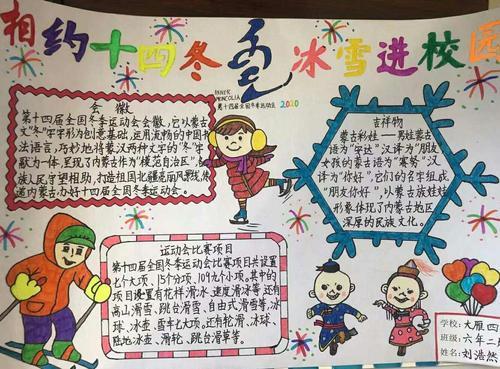 相约十四冬 冰雪进校园
INNER
MONGOLIA
第十四届全国冬季运动会
2020
会徽
第十四届全国冬季运动会会徽,它以蒙古
文"冬"字形为创意基础,运用流畅的中国书
法语言,巧妙地将蒙汉两种文字的"冬"字
融为一体,呈现了内蒙古作为"模范自治区",各
族人民守望相助,打造祖国北疆亮丽风景线,传
递内蒙古办好十四届全国冬季运动会。
吉祥物
蒙古彩娃一男娃蒙古
语为"安达"汉译为"朋友"
女孩的蒙古语为"赛努"汉
译为"你好",它们的名字组成
"朋友你好",以蒙古族娃娃
形象体现了内蒙古地区
深厚的民族文化。
运动会比赛项目
第十四届全国冬季运动会比赛项目共设置
七个大项、15个分项、109个小项。其中的
项目设置有花样滑冰、速度滑冰等还有
高山滑雪、跳台滑雪、自由式滑雪等,冰
球、冰壶、雪车七大项。还有轮滑、冰球、
陆地冰壶、滑轮、跳台滑草等。
学校:大雁四
班级:六年二
姓名:刘浩然